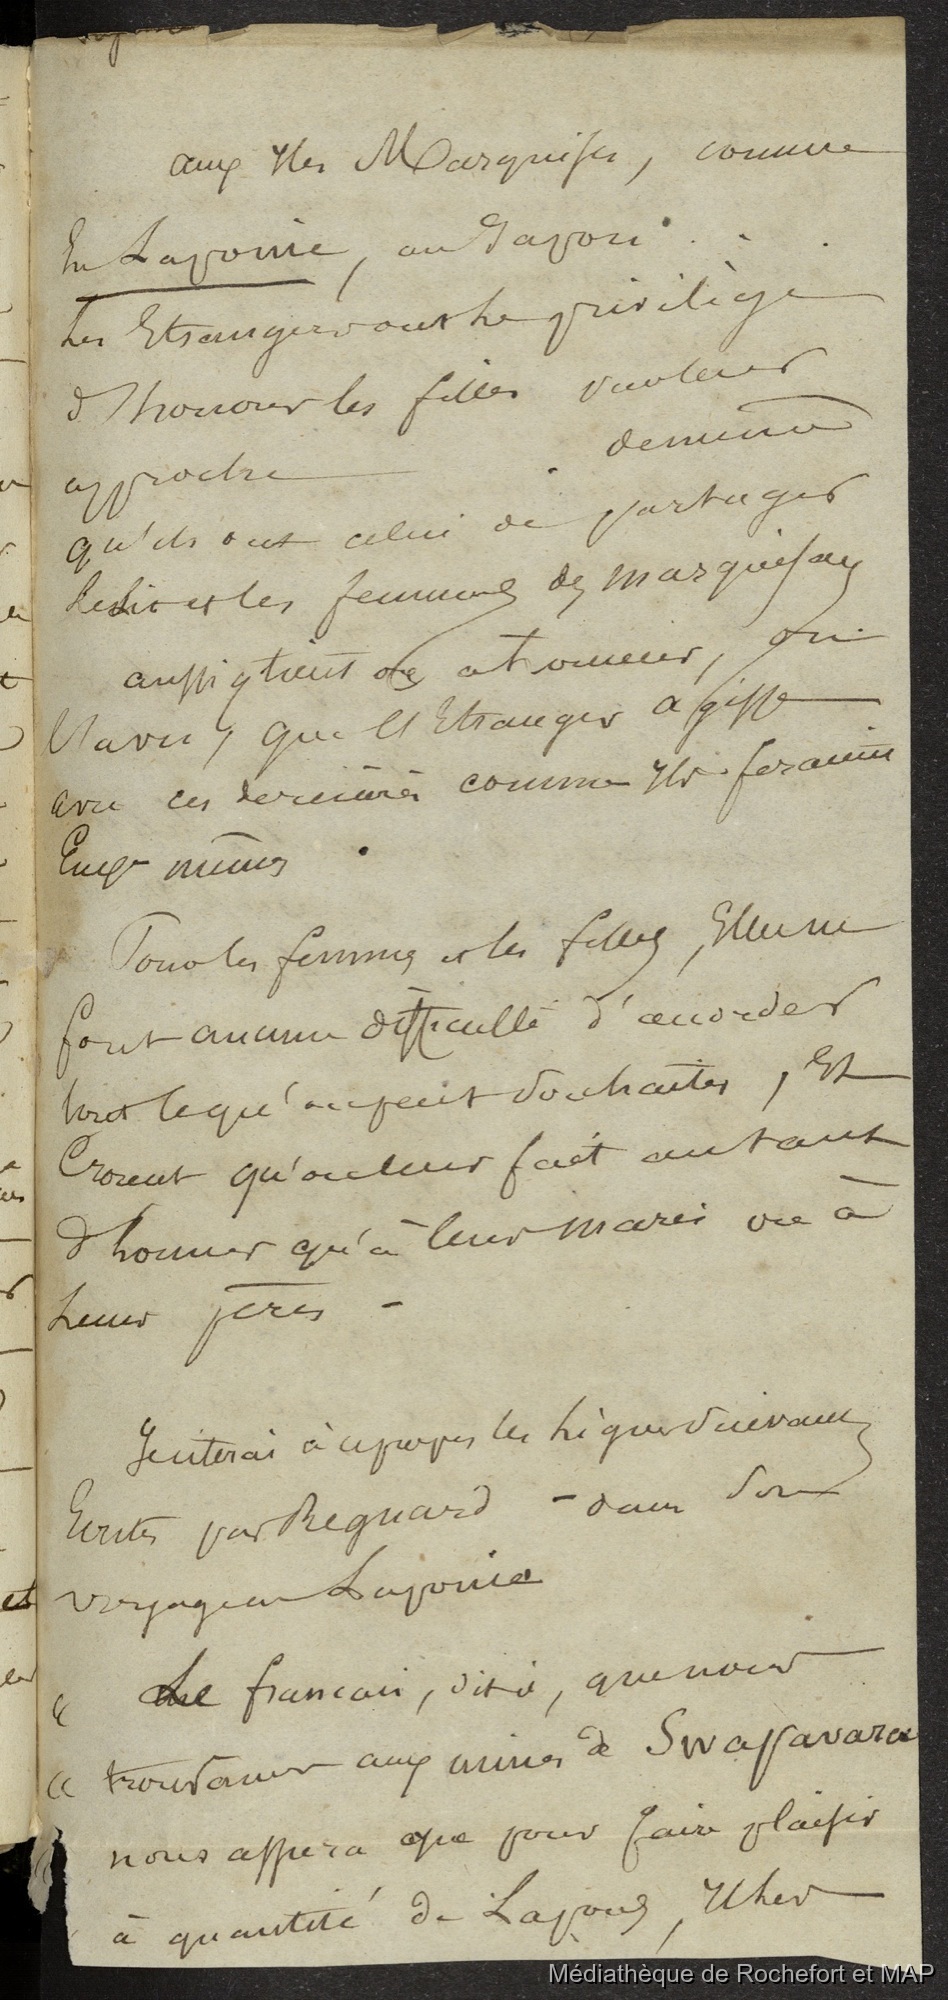 aux Iles Marquises, comme
En Laponie, au Japon . . .
Les Etrangers ont le privilège
d'honorer les filles par leur
approche de même
qu'ils ont celui de partager
le lit et les femmes des marquisans
aussi tient on à honneur, on
l'a vu, que l'Etranger agisse
avec ces dernières comme ils feraient
Eux mêmes .
Tous les femmes et les filles, Elles ne
font aucune difficulté d'accorder
tout ce qu'on peut souhaiter, Et
Croient qu'on leur fait autant
d'honneur qu'à leur mari ou à
Leur pères -
Je citerai à ce propos les lignes suivantes
Ecrites par Regnard - dans son
voyage en Laponie
« Le francais, dit-il, que nous
« trouvames aux mines de Swapavara
nous assura que pour faire plaisir
à quantité de Lapons, Il les
Médiathèque de Rochefort et MAP